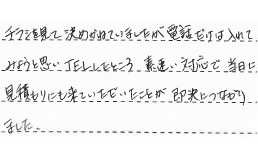 チラシを見て決めかねていましたが電話だけは入れて
みようと思いTELしたところ素速い対応で当日に
見積もりにも来ていただいたことが即決につながり
ました。